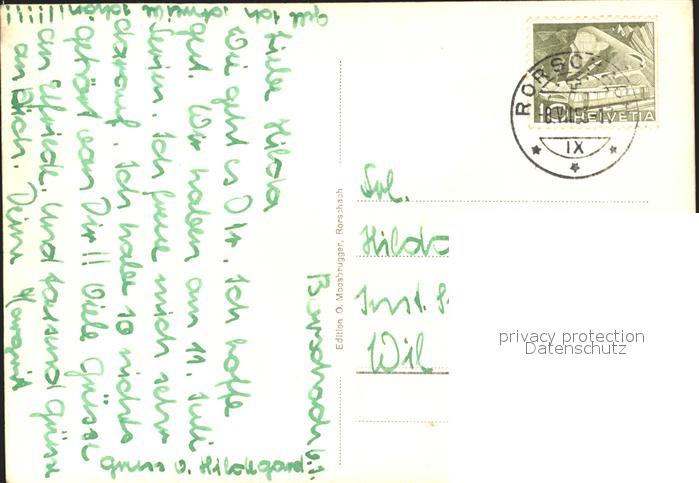 Rorschach 6.7.
Liebe Hilda
Wie geht es Dir. Ich hoffe
gut. Wir haben am 11. Juli
Ferien. Ich freue mich sehr
darauf. Ich habe so nichts
gehört von Dir!! Viele Grüsse
an Elfriede. Und tausend Grüsse
an Dich. Deine
Gruss v. Hildegard.
Gell ich schön!!!!!!!!!
Edition O. Moosbrugger, Rorschach
RORSCHACH
IX
HELVETIA
Frl.
Hilda
Inst.
Wil
privacy protection
Datenschutz